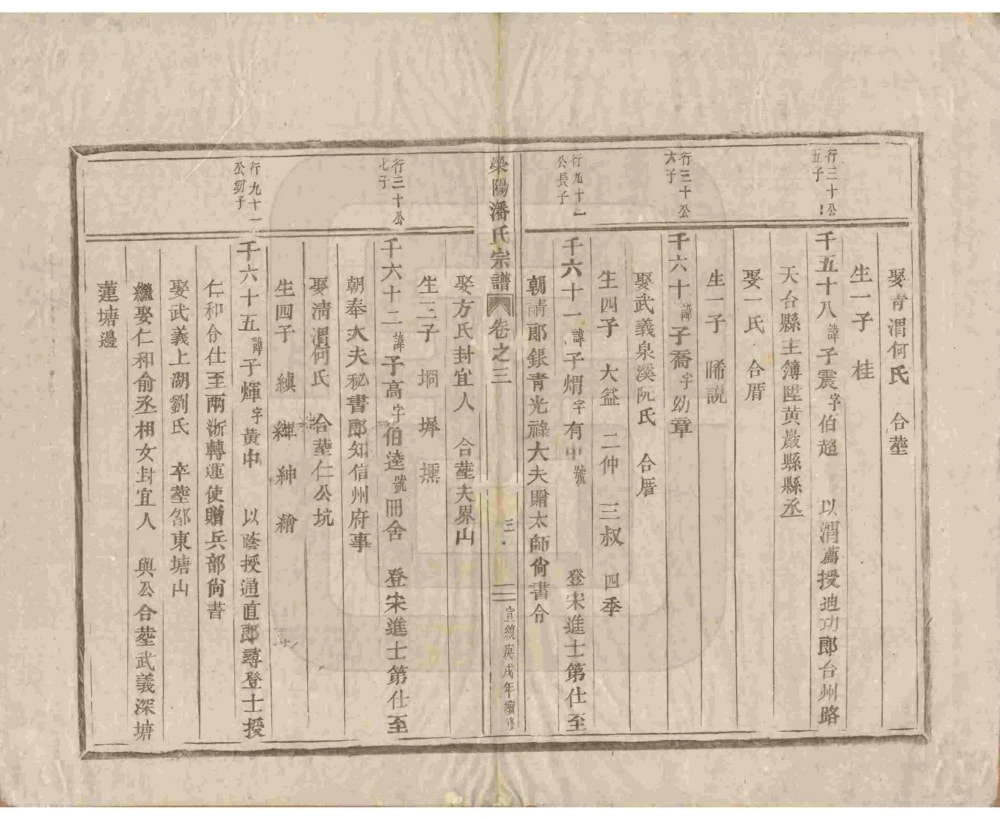 娶青渭何氏　合塟
生一子　桂
行三十公五子
千五十八諱子震字伯超　以渭薦授迪功郎台州路
天台縣主簿陞黄巖縣縣丞
娶一氏　合厝
生一子　晞説
行三十公六子
千六十諱子喬字幼章
娶武義泉溪阮氏　合厝
生四子　大益　二仲　三叔　四季
行九十一公長子
千六十一諱子焆字有中號　登宋進士第仕至
朝請郎銀青光祿大夫贈太師尙書令
榮陽潘氏宗譜　卷之三　三　宣統庚戌年續修
娶方氏封宜人　合塟夫界山
生三子　垌　墀　壖
行三十公七子
千六十二諱子高字伯逵號冊舍　登宋進士第仕至
朝奉大夫秘書郎知信州府事
娶淸渭何氏　合塟仁公坑
生四子　縝　緷　紳　繪
行九十一公　子
千六十五諱子煇字黃中　以蔭授通直郎尋登士授
仁和令仕至兩浙轉運使贈兵部尙書
娶武義上湖劉氏　卒塟郃東塘山
繼娶仁和俞丞相女封宜人　與公合塟武義深塘
蓮塘邊